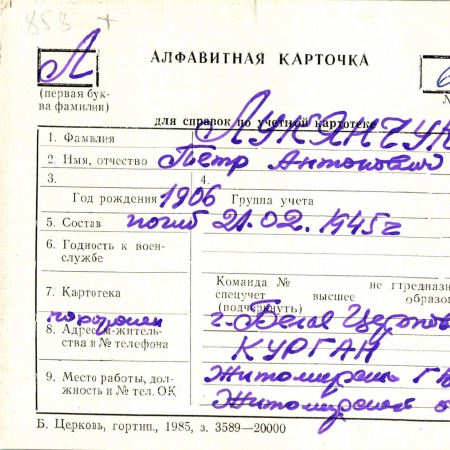 858 +
Л
АЛФАВИТНАЯ КАРТОЧКА
(первая бук-
ва фамилии)
№
для справок по учетной картотеке
1. Фамилия ЛУКЯНЧУК
2. Имя, отчество Петр Антонович
3. 4.
Год рождения 1906 Группа учета
5. Состав погиб 21.02.1945г
6. Годность к воен-
службе
Команда №
7. Картотека спецучет высшее образо
(подчеркнуть)
похоронен г. Белая Церковь
8. Адрес и житель-
ства и № телефона КУРГАН
9. Место работы, дол-
жность и № тел. ОК
Б. Церковь, гортип., 1985, з. 3589—20000